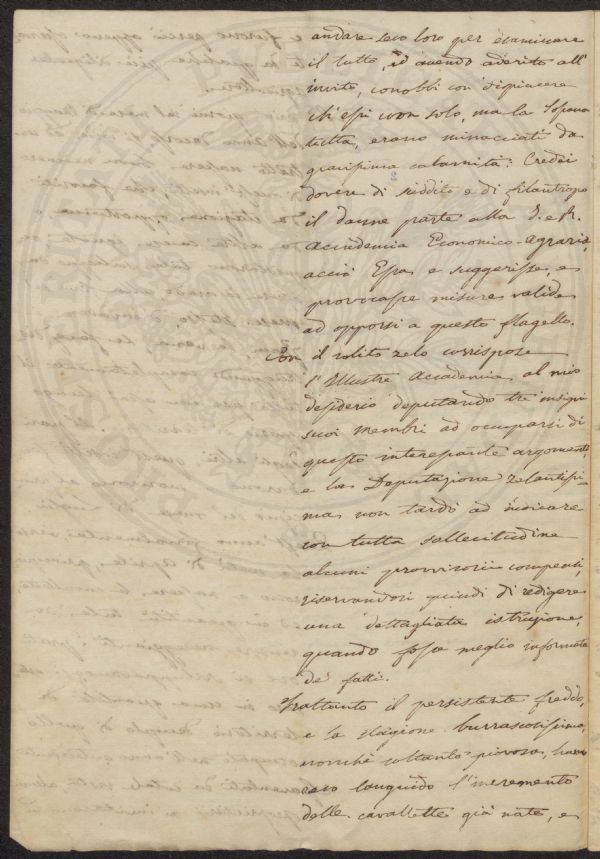 andare seco loro per esaminare
il tutto, ed avendo aderito all'
invito, conobbi con dispiacere
ch'essi non solo, ma la Toscana
tutta, erano minacciati da
gravissima calamità. Credei
dovere di suddito e di filantropo
il darne parte alla I. e R.
Accademia Economico-Agraria,
acciò Essa e suggerisse, e
provocasse misure valide
ad opporsi a questo flagello.
Con il solito zelo corrispose
l'Illustre Accademia al mio
desiderio deputando tre insigni
suoi membri ad occuparsi di
questo interessante argomento,
e la Deputazione zelantissi-
ma non tardò ad indicare
con tutta sollecitudine
alcuni provvisori compensi,
riservandosi quindi di redigere
una dettagliata istruzione,
quando fosse meglio informata
de' fatti.
Frattanto il persistente freddo,
e la stagione burrascosissima,
nonchè soltanto piovosa, hanno
reso languido l'incremento
delle cavallette già nate, e